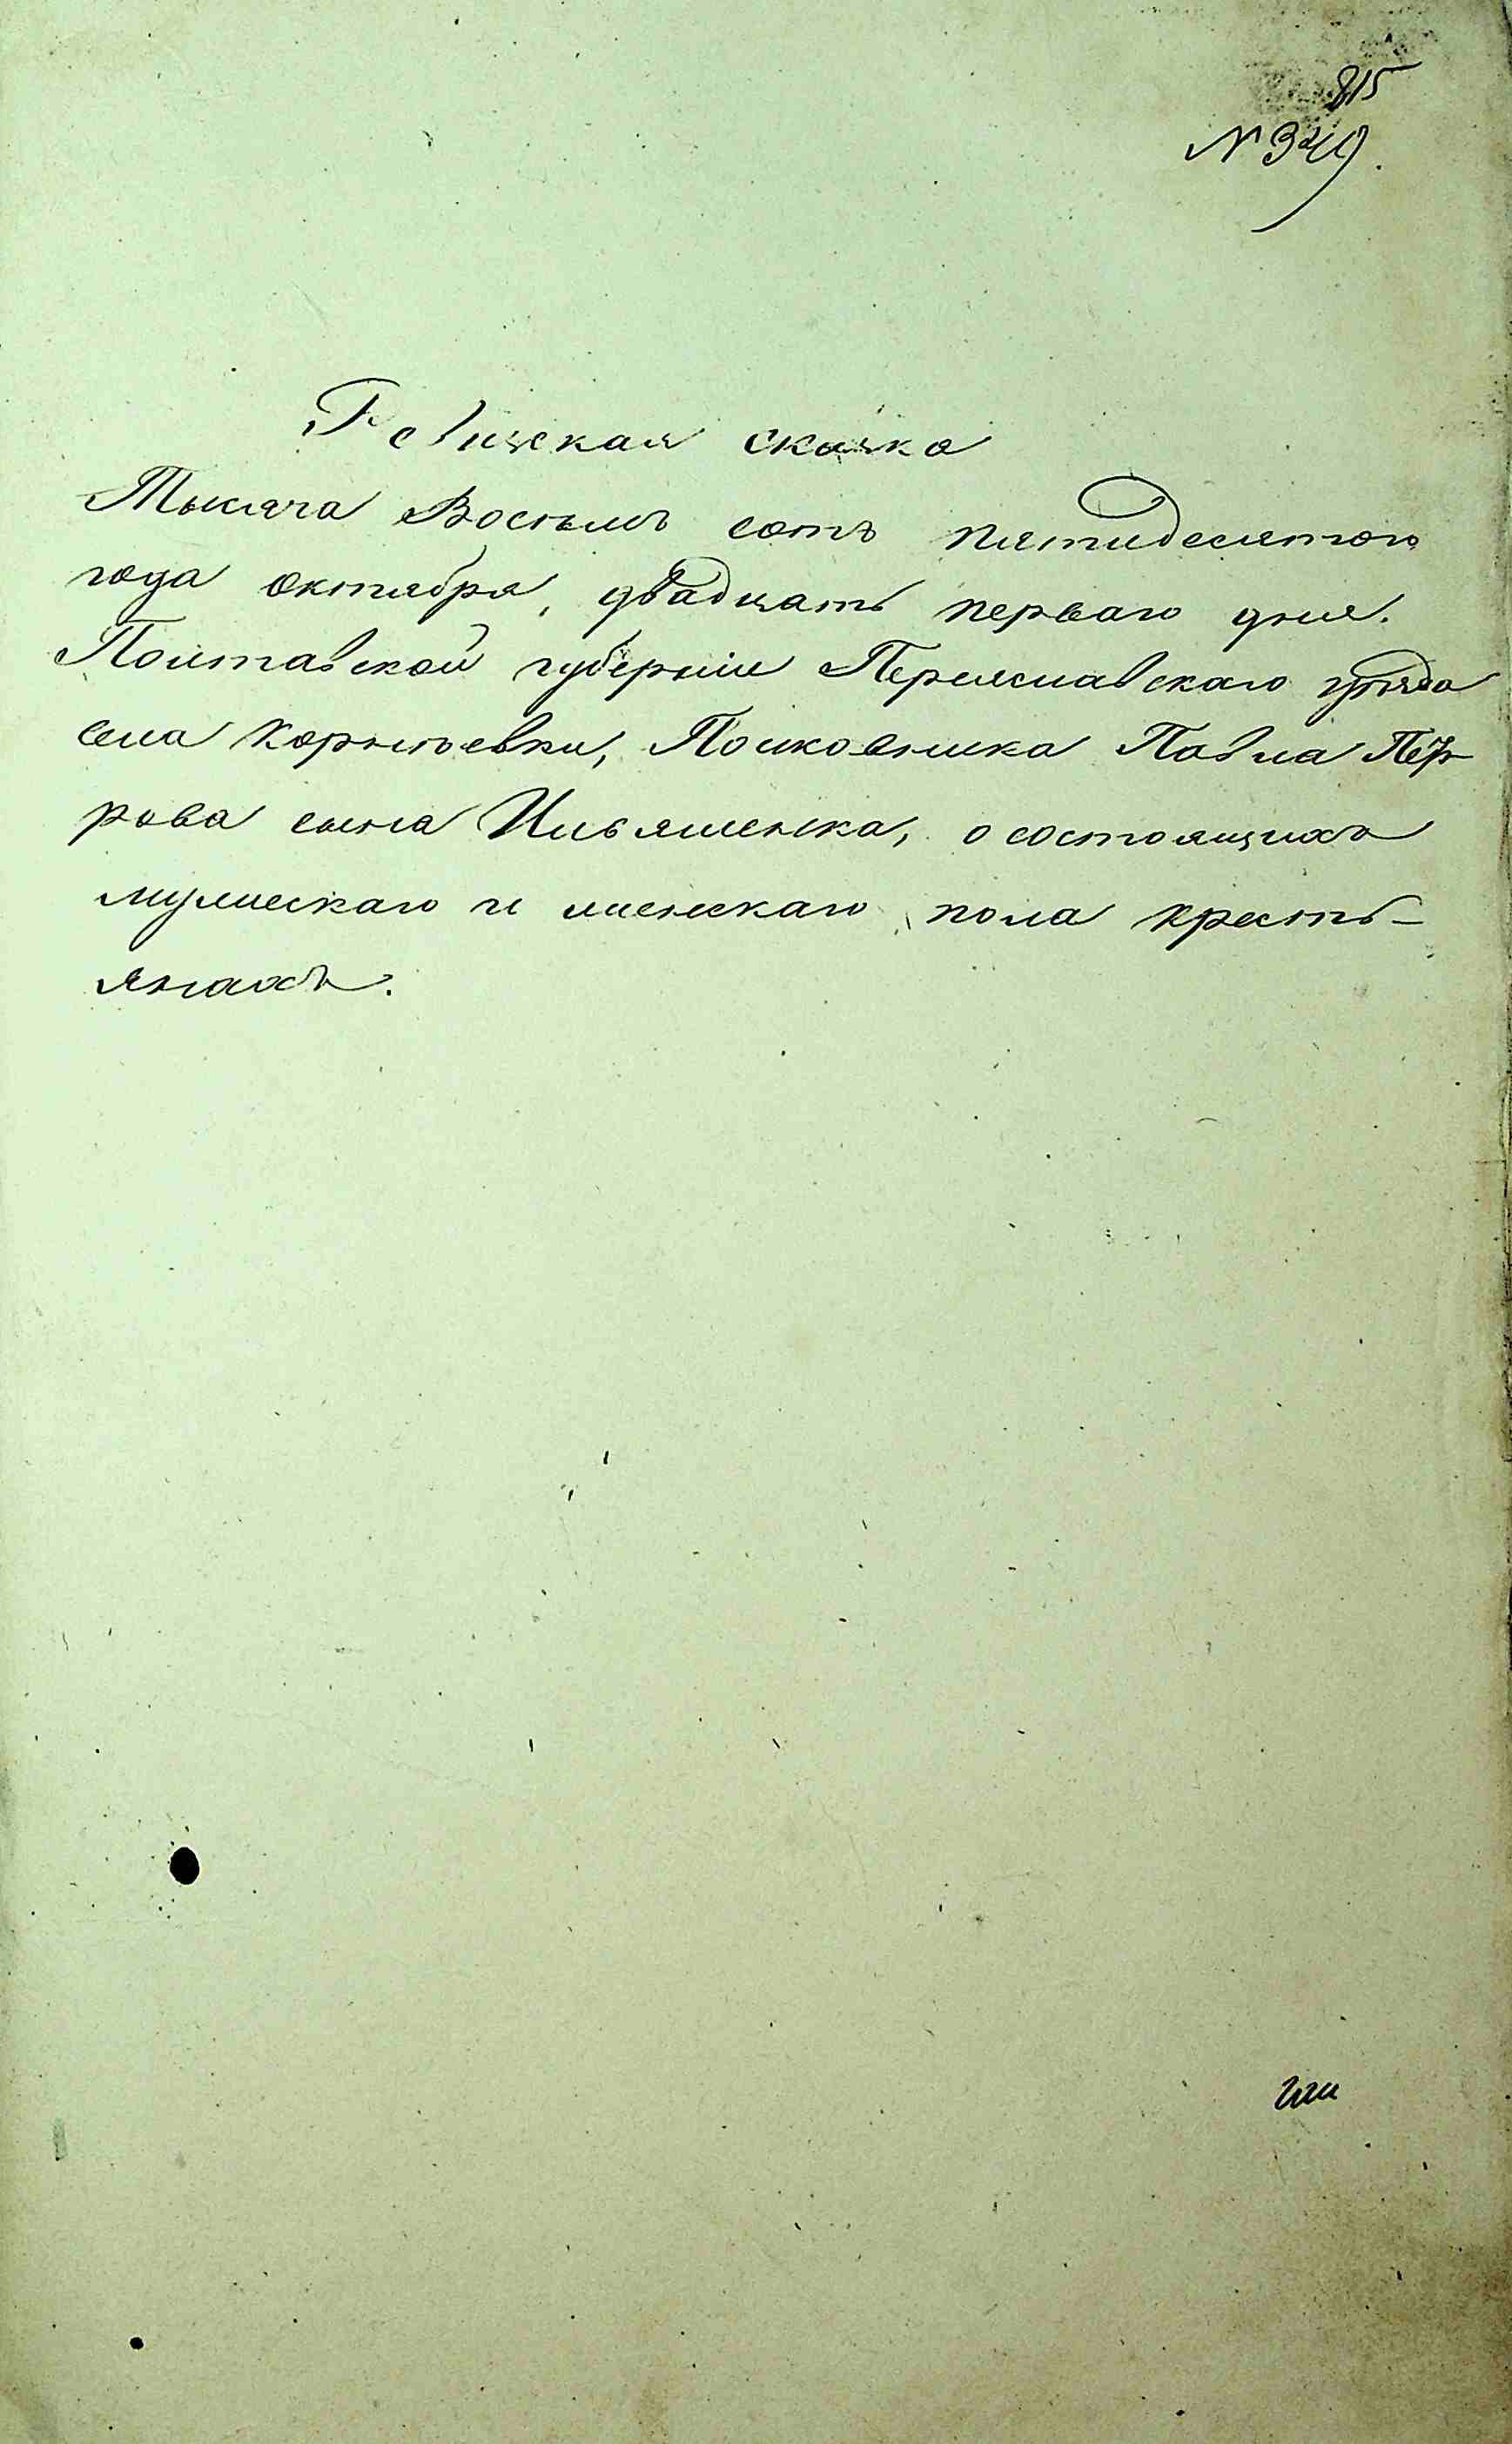 815
N 349.
Ревизская сказка
Тысяча Восемь сотъ пятидесятого
года октября, двадцать перваго дня.
Полтавской губерніи Переяславскаго уѣзда
села Корнѣевки, Полковника Павла Пет
рова сына Ильяшенка, о состоящихъ
мужескаго и женскаго пола кресть-
янахъ.